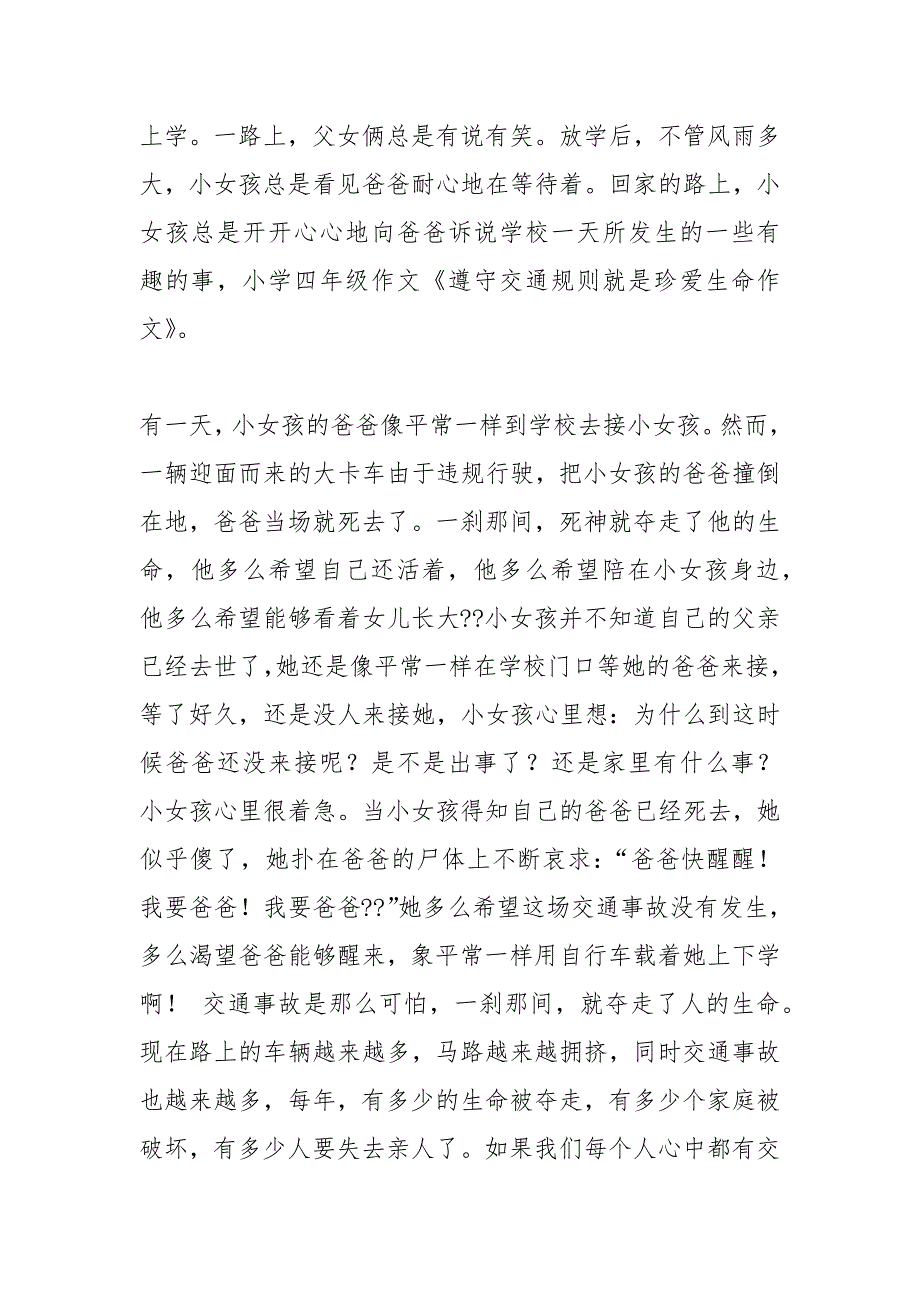 上学。一路上，父女俩总是有说有笑。放学后，不管风雨多
大，小女孩总是看见爸爸耐心地在等待着。回家的路上，小
女孩总是开开心心地向爸爸诉说学校一天所发生的一些有
趣的事，小学四年级作文《遵守交通规则就是珍爱生命作
文》。
有一天，小女孩的爸爸像平常一样到学校去接小女孩。然而，
一辆迎面而来的大卡车由于违规行驶，把小女孩的爸爸撞倒
在地，爸爸当场就死去了。一刹那间，死神就夺走了他的生
命，他多么希望自己还活着，他多么希望陪在小女孩身边，
他多么希望能够看着女儿长大??小女孩并不知道自己的父亲
已经去世了，她还是像平常一样在学校门口等她的爸爸来接，
等了好久，还是没人来接她，小女孩心里想：为什么到这时
候爸爸还没来接呢？是不是出事了？还是家里有什么事？
小女孩心里很着急。当小女孩得知自己的爸爸已经死去，她
似乎傻了，她扑在爸爸的尸体上不断哀求：“爸爸快醒醒！
我要爸爸！我要爸爸??”她多么希望这场交通事故没有发生，
多么渴望爸爸能够醒来，象平常一样用自行车载着她上下学
啊！ 交通事故是那么可怕，一刹那间，就夺走了人的生命。
现在路上的车辆越来越多，马路越来越拥挤，同时交通事故
也越来越多，每年，有多少的生命被夺走，有多少个家庭被
破坏，有多少人要失去亲人了。如果我们每个人心中都有交